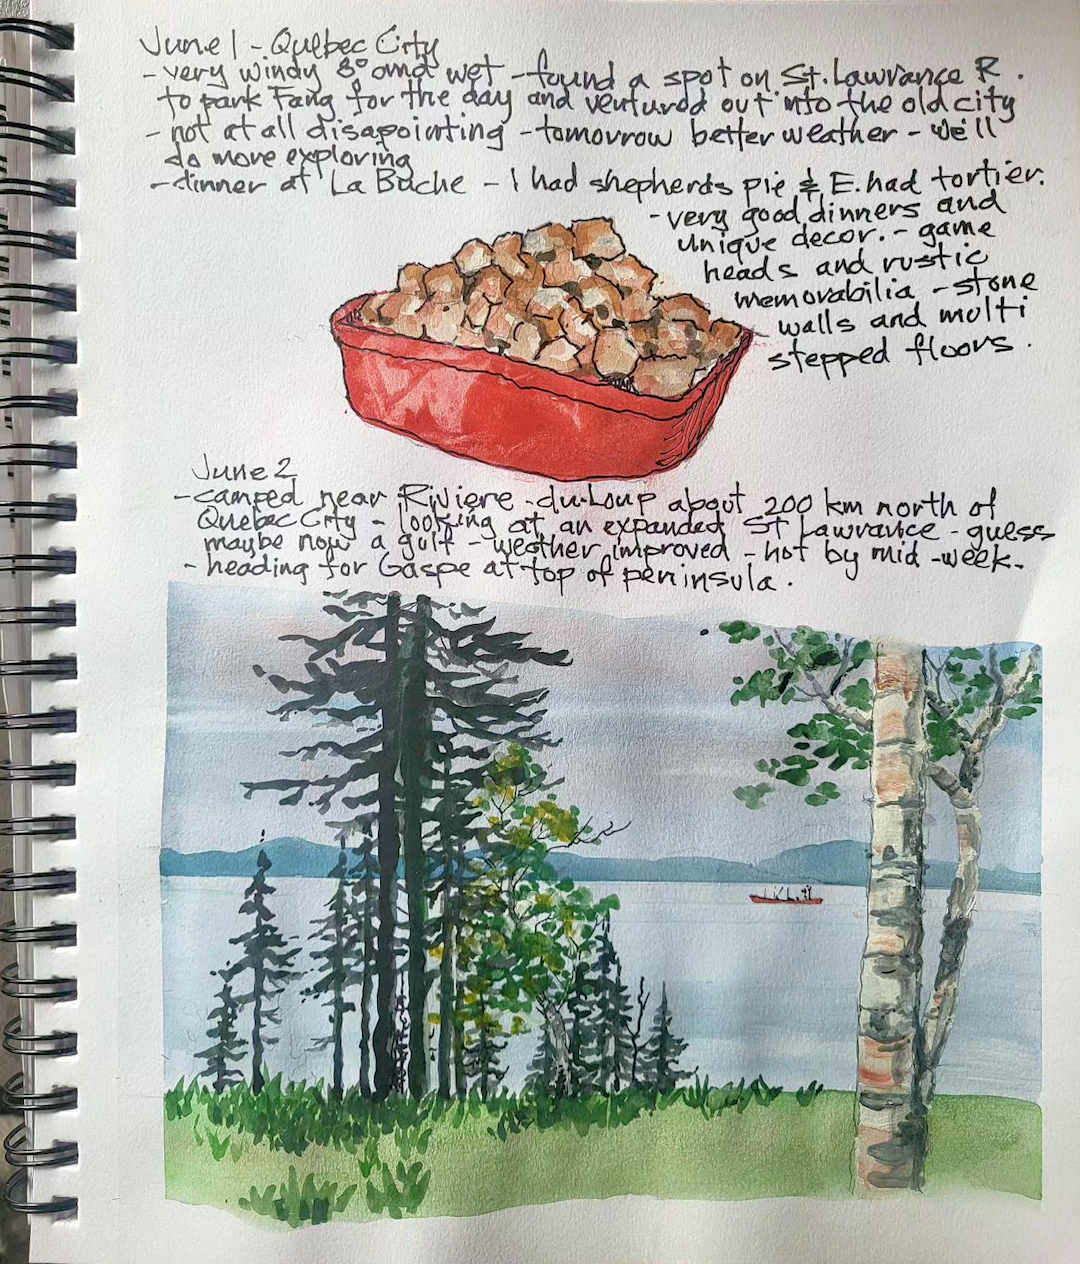 June 1 - Quebec City
- very windy 8° and wet - found a spot on St. Lawrance R.
to park Fang for the day and ventured out into the old city
- not at all disapointing - tomorrow better weather - we'll
do more exploring
- dinner at La Buche - I had shepherds pie & E. had tortier.
- very good dinners and
unique decor. - game
heads and rustic
memorabilia - stone
walls and multi
stepped floors.
June 2
- camped near Riviere-du-Loup about 200 km north of
Quebec City - looking at an expanded St Lawrance - guess
maybe now a gulf - weather improved - hot by mid-week.
- heading for Gaspe at top of peninsula.